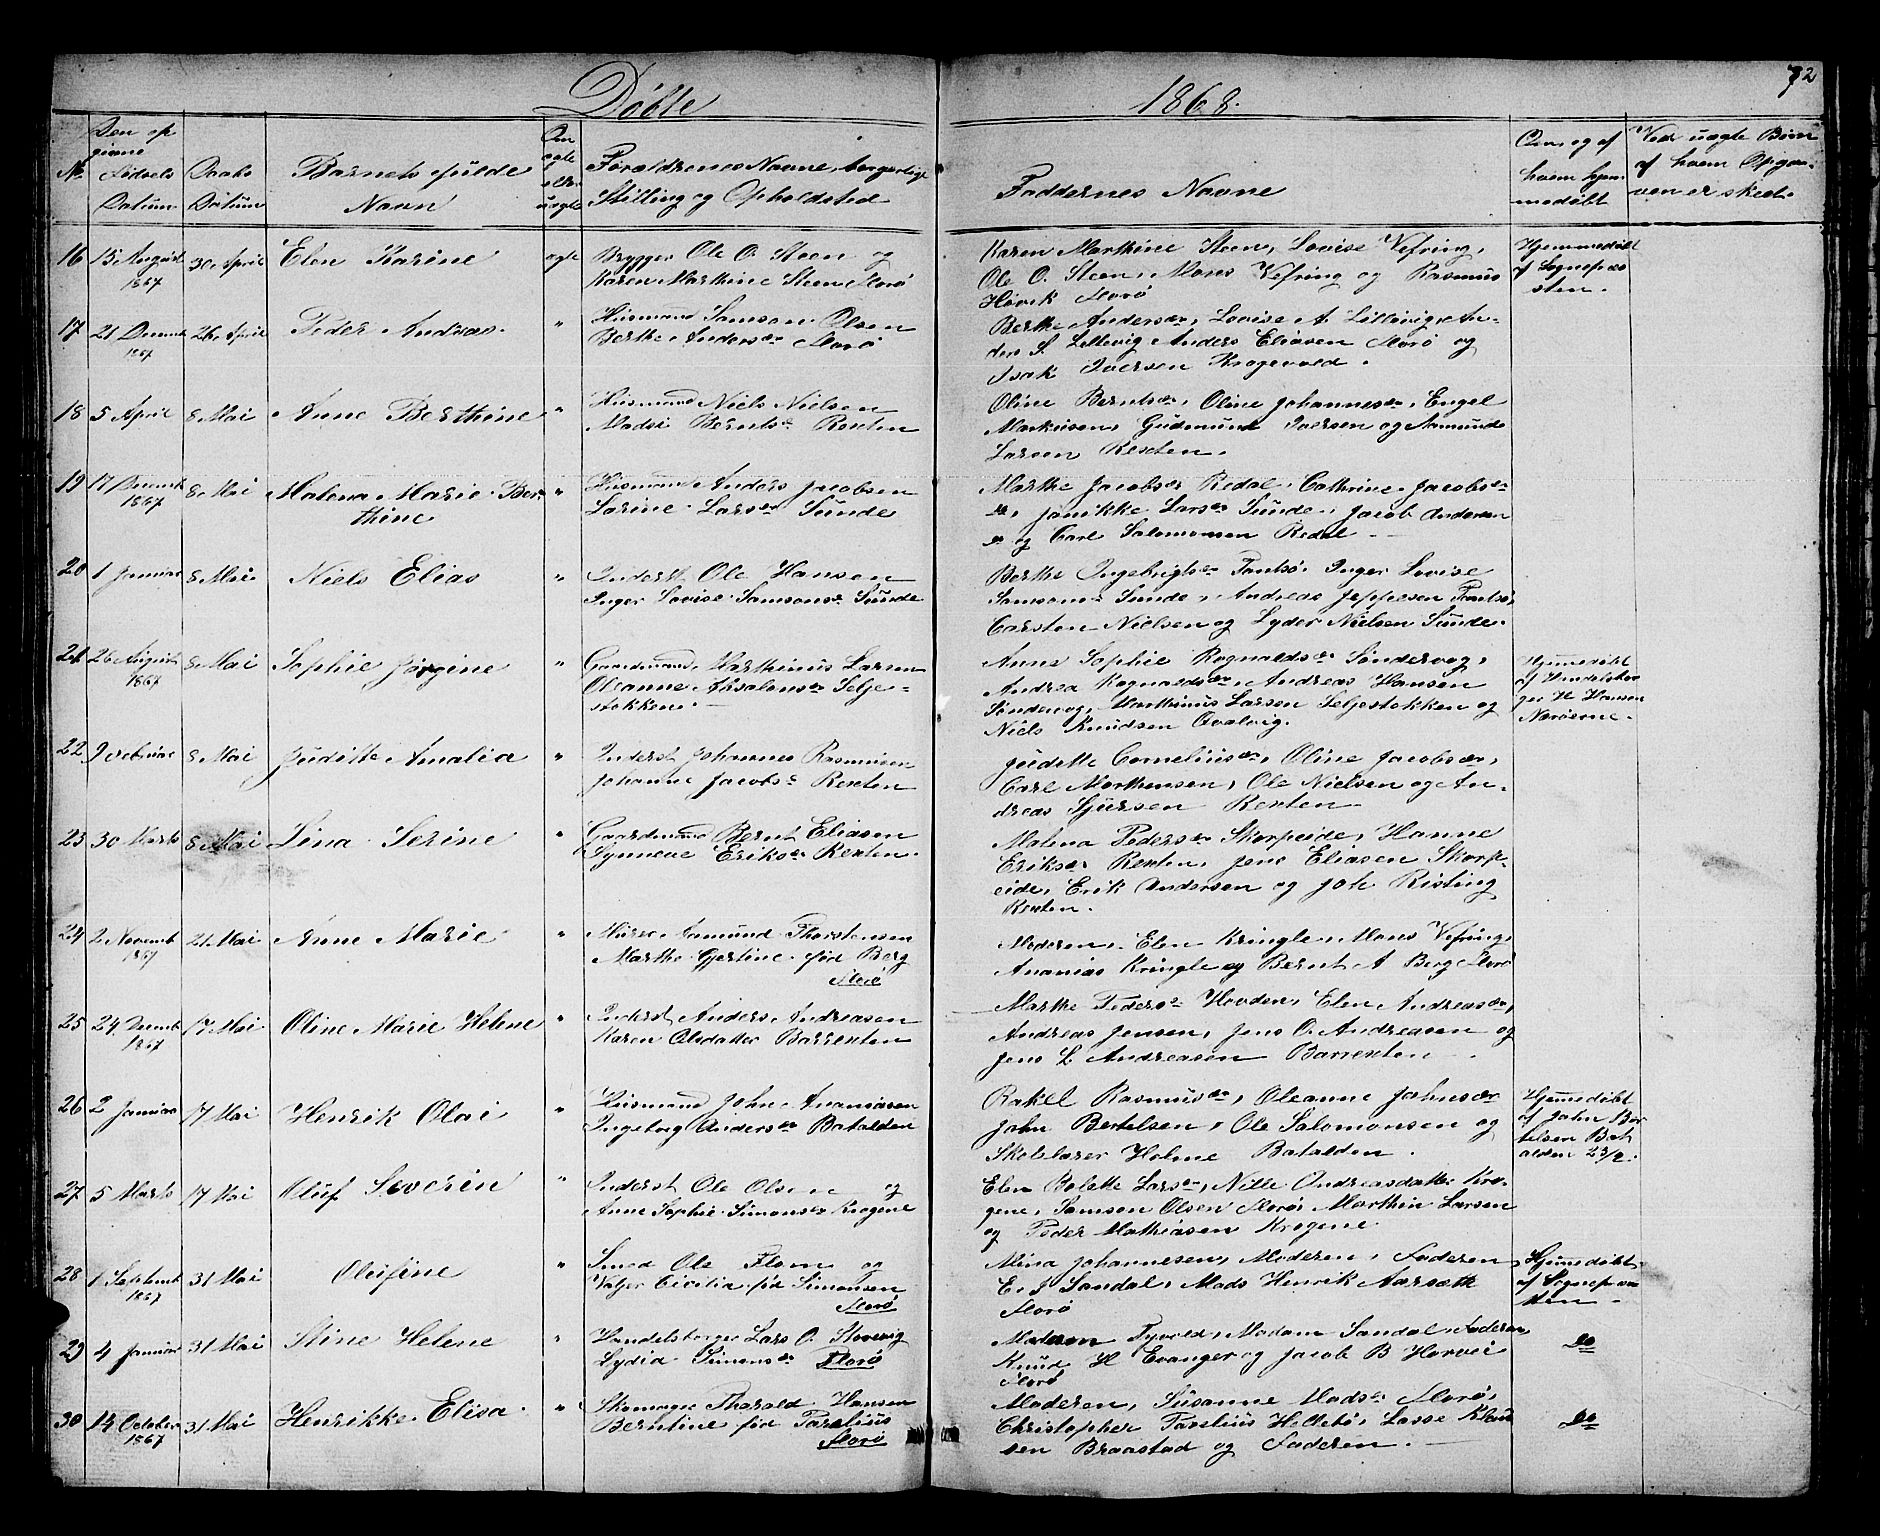 72
Döbte 1868.
No
Den op
givne
Fødsels
Datum
Daabs
Datum
Barnets fulde
Navn
Om
egte
eller
uægte
Forældrenes Navne, borgerlige
Stilling og Opholdsted
Faddernes Navne
Om og af
hvem hjem
medöbt
Ved uægte Börn
af hvem Opgav
ven er skedt.
16 15 August 30 April Elen Karine ægte Brygger Ole O. Steen og
1867 Karen Marthine Steen Florö
Karen Marthine Steen, Lovise Vefring,
Ole O. Steen, Mons Vefring og Rasmus
Hövik Florö
Hjemmedöbt
af Sognepræ
sten.
17 21 Decemb 26 April Peder Andreas. " Husmand Samson Olsen
1867 Berthe Andersdr Florö
Berthe Andersdr, Lovise A. Lillevig, An-
ders S. Lillevig, Anders Eliasen Florö og
Isak Iversen Krogevold.
18 5 April 8 Mai Anne Berthine " Husmand Niels Nielsen
Madsi Berntsdr Rexten
Oline Berntsdr, Oline Johannesdr, Engel
Markusen, Gudmund Iversen og Aamunde
Larsen Rexten.
19 17 Decemb 8 Mai Malena Marie Ber " Husmand Anders Jacobsen
1867 thine Larine Larsdr Sunde
Marthe Jacobsdr Redal, Cathrine Jacobsdr
do, Janikke Larsdr Sunde, Jacob Andersen
do og Carl Salomonsen Redal
20 1 Januar 8 Mai Niels Elias " Inderst Ole Hansen
Inger Lovise Samsonsdr Sunde
Berthe Ingebrigtsdr Tansö, Inger Lovise
Samsonsdr Sunde, Andreas Jeppesen Tansö,
Carsten Nielsen og Lyder Nielsen Sunde.
21 26 August 8 Mai Sophie Jörgine " Gaardmand Marthinus Larsen
1867 Oleanne Absalonsdr Selje-
stokken.
Anne Sophie Rognaldsdr Söndervog,
Andrea Rognaldsdr, Andreas Hansen
Söndervog, Marthinus Larsen Seljestokken og
Niels Knudsen Qvalvig.
Hjemmedöbt
af Handelsbor
ger H. Hansen
Naröerne.
22 9 Februar 8 Mai Juditte Amalia " Inderst Johannes Rasmusen
Johanne Jacobsdr Rexten
Juditte Corneliusdr, Oline Jacobsdr,
Carl Morthensen, Ole Nielsen og An-
dreas Sjursen Rexten
23 30 Marts 8 Mai Lina Serine " Gaardmand Bernt Eliasen
Synneve Eriksdr Rexten.
Malena Pedersdr Skorpeide, Hanne
Eriksdr Rexten, Jens Eliasen Skorp-
eide, Erik Andersen og Joh Risting
Rexten.
24 2 Novemb 21 Mai Anne Marie " Murer Aamund Thorstensen
1867 Marthe Gjertine för Berg
Florö
Moderen, Elen Kringle, Mons Vefring,
Ananias Kringle og Bernt A Berg Florö
25 24 Decemb 17 Mai Oline Marie Helene " Inderst Anders Andreasen
1867 Karen Olsdatter Barrexten
Marthe Pedersdr Hovden, Elen Andreasdr,
Andreas Jensen, Jens O. Andreasen og
Jens L. Andreasen Barrexten.
26 2 Januar 17 Mai Henrik Olai " Husmand John Ananiasen
Ingeborg Andersdr Batalden
Rakel Rasmusdr, Oleanne Johnsdr
John Bertelsen, Ole Salomonsen og
Skolelærer Holme Batalden.
Hjemmedöbt
af John Ber
telsen Bat
alden 23/2.
27 5 Marts 17 Mai Oluf Severin " Inderst Ole Olsen og
Anne Sophie Simonsdr Krogene
Elen Bolette Larsdr, Nille Andreasdatter Kro-
gene, Samson Olsen Florö, Marthin Larsen
og Peder Mathiasen Krogene.
28 1 Septemb 31 Mai Olufine " Smed Ole Flom og
1867 Valjer Cicilia för Simonsen
Florö
Mina Johannesen, Moderen, Faderen
E. J Sandal, Mads Henrik Aarsæth
Florö
Hjemmedöbt
af Sognepræ
sten
29 4 Januar 31 Mai Stine Helene " Handelsborger Lars O. Stovevig
Lydia Simonsdr Florö
Madam Tyvold, Madam Sandal, Faderen,
Knud H Evanger og Jacob B Horvei
Florö
do
30 14 October 31 Mai Henrikke Elisa. " Skomager Tharald Hansen
1867 Berntine för Parelius
Florö
Moderen, Susanne Madsdr Florö,
Christopher Parelius Hellebö, Lasse Knud
sen Braastad og Faderen.
do